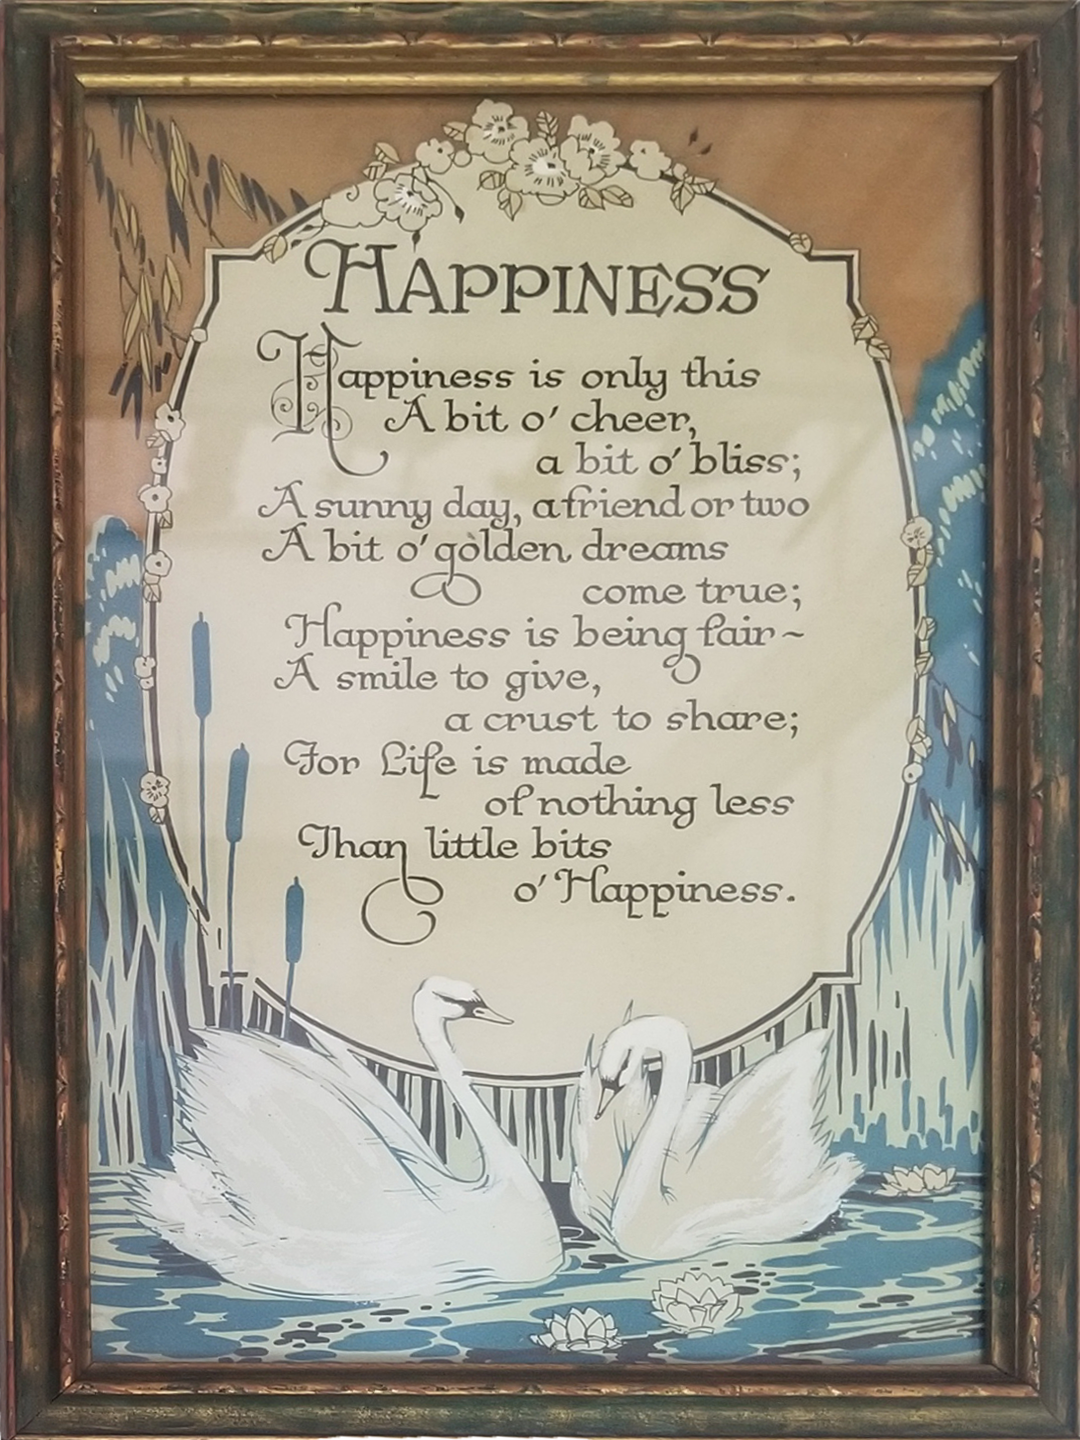 HAPPINESS
Happiness is only this
A bit o' cheer,
a bit o' bliss;
A sunny day, a friend or two
A bit o' golden dreams
come true;
Happiness is being fair~
A smile to give,
a crust to share;
For Life is made
of nothing less
Than little bits
o' Happiness.